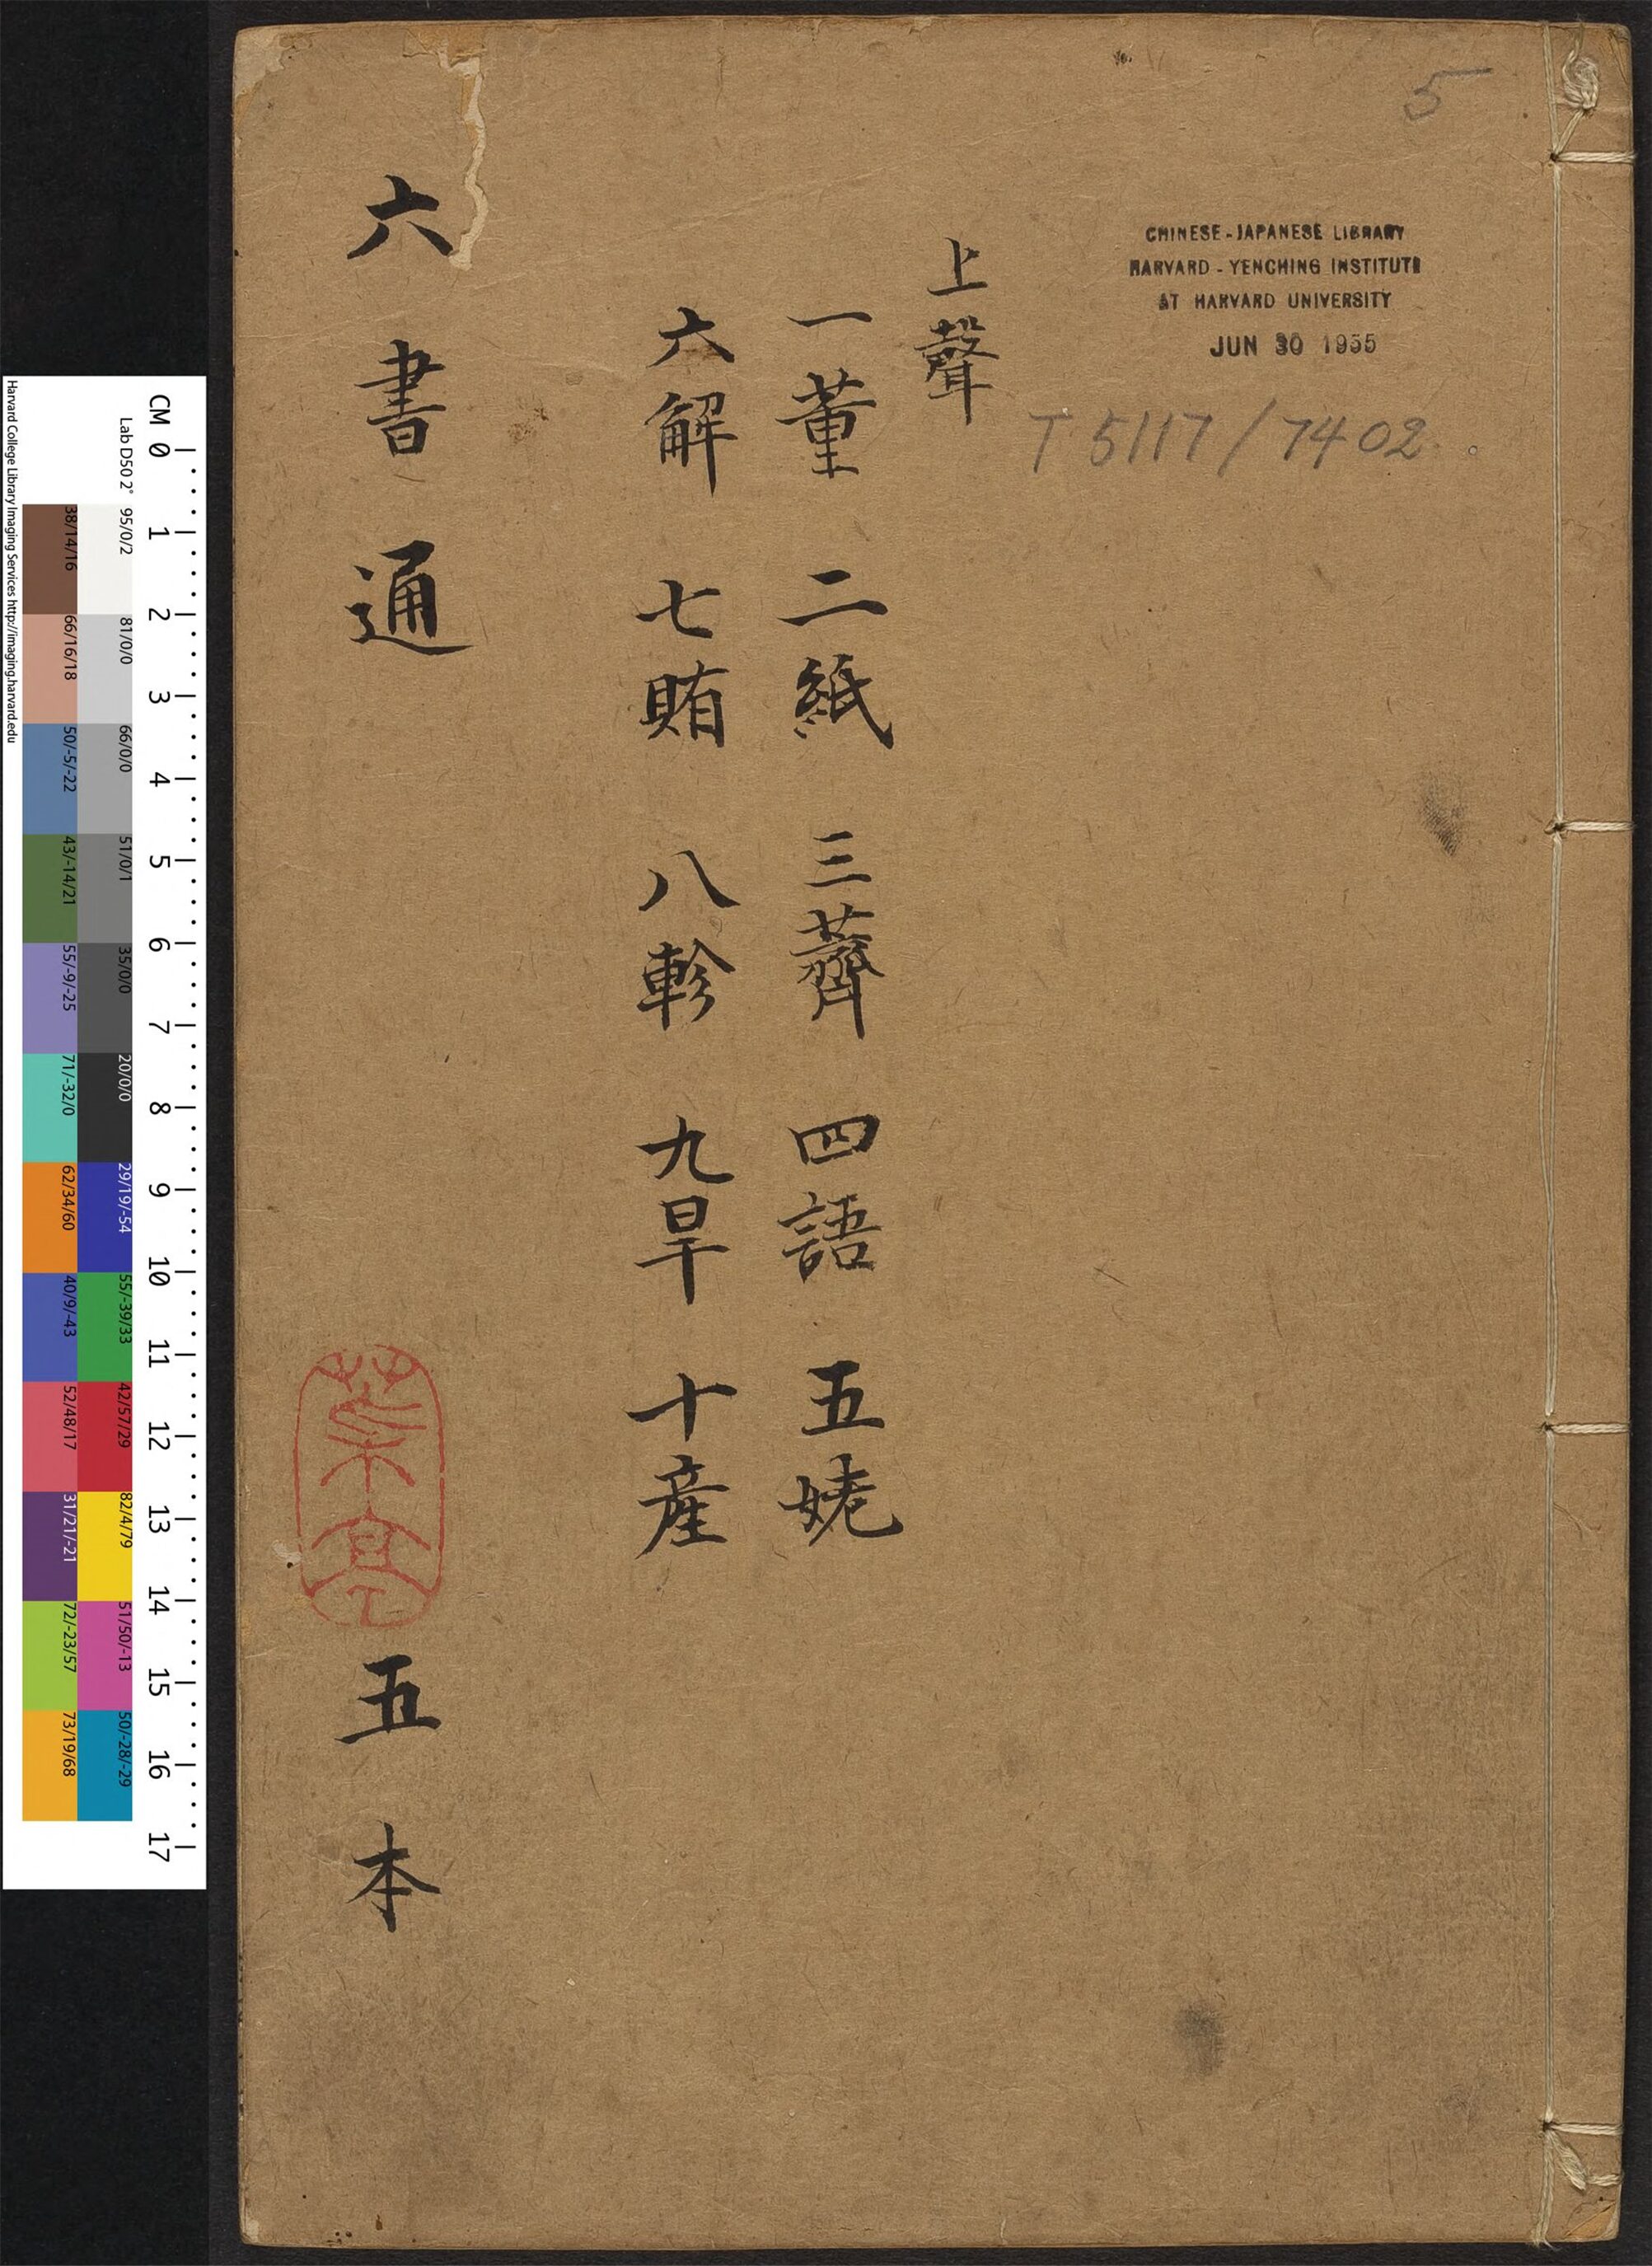 5
CHINESE-JAPANESE LIBRARY
HARVARD-YENCHING INSTITUTE
AT HARVARD UNIVERSITY
JUN 30 1955
T 5117/7402
上聲
一董 二紙 三薺 四語 五姥
六解 七賄 八軫 九旱 十産
六書通
五本
CM 0 1 2 3 4 5 6 7 8 9 10 11 12 13 14 15 16 17
Lab D50 2° 95/0/2 81/0/0 66/0/0 51/0/1 35/0/0 20/0/0 29/19/-54 55/-39/33 42/57/29 82/4/79 51/50/-13 50/-28/-29
38/14/16 66/16/18 50/-5/-22 43/-14/21 55/-9/-25 71/-32/0 62/34/60 40/9/-43 52/48/17 31/21/-21 72/-23/57 73/19/68
Harvard College Library Imaging Services http://imaging.harvard.edu